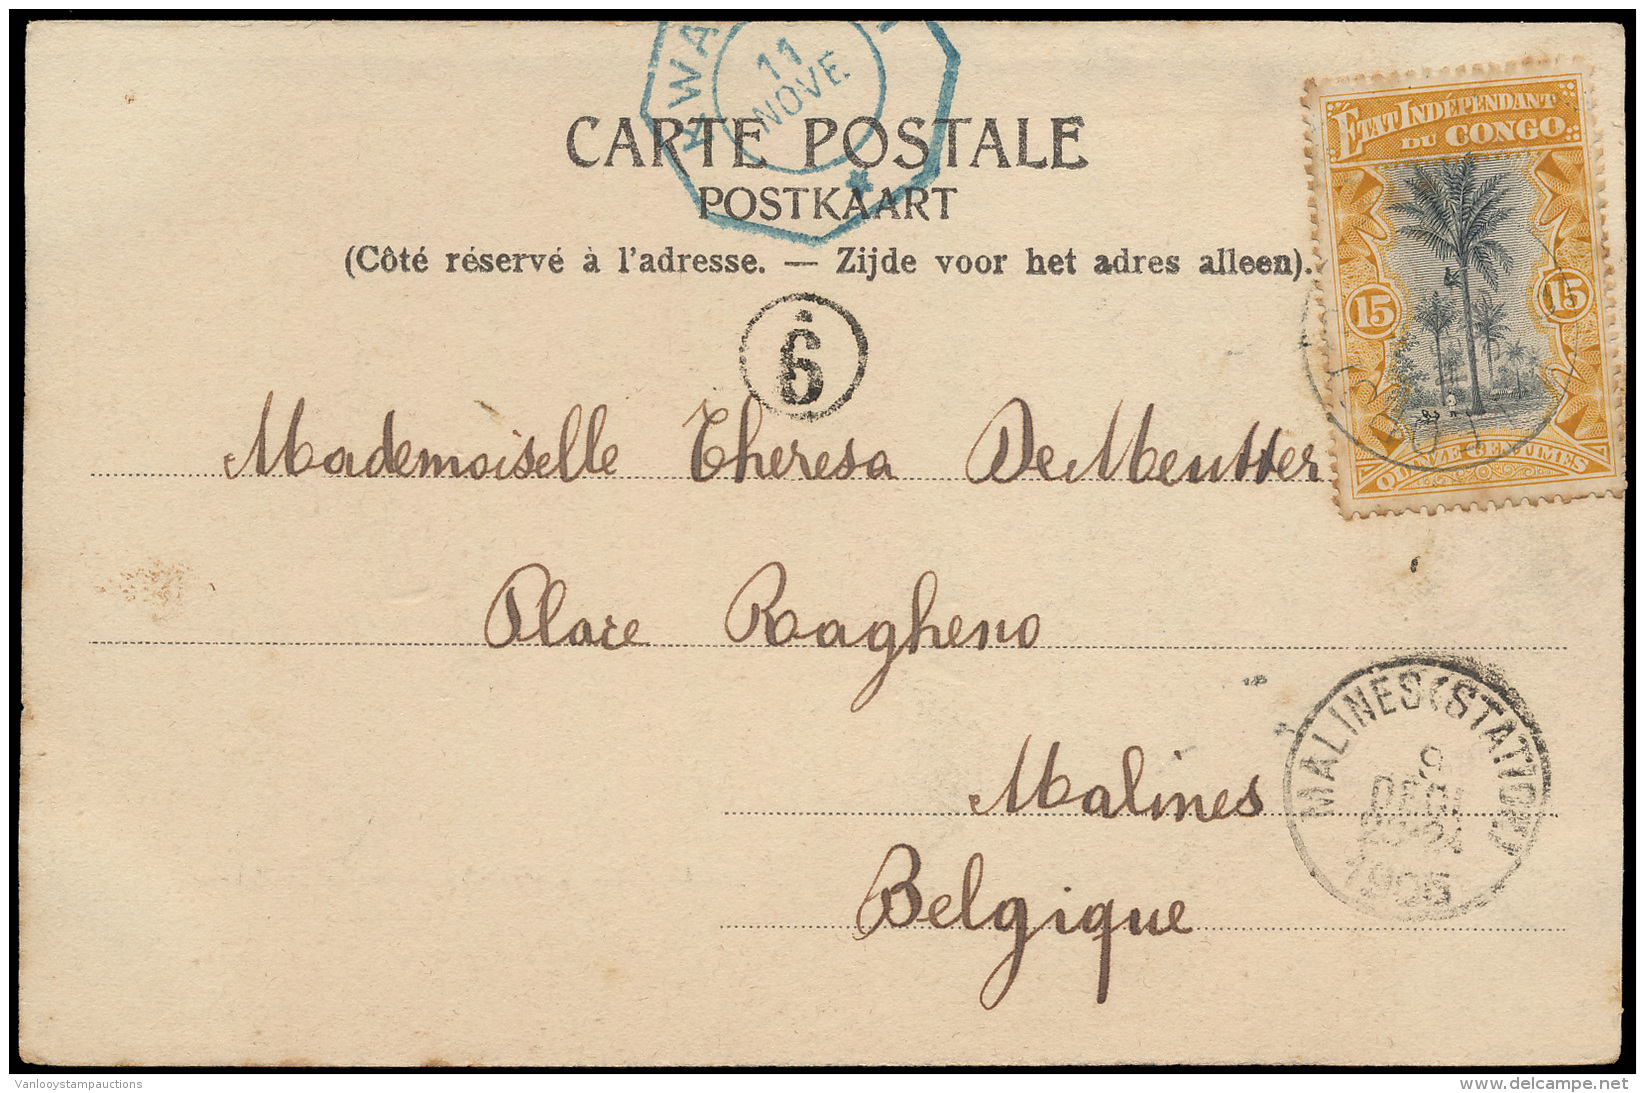 KWA
11
NOVE
CARTE POSTALE
POSTKAART
(Côté réservé à l'adresse. — Zijde voor het adres alleen).
ÉTAT INDÉPENDANT
DU CONGO
15 15
CENTIMES
6
Mademoiselle Theresa De Meutter
Place Ragheno
Malines
Belgique
MALINES (STATION)
9
DECE
1905
Vanlooystampauctions
www.delcampe.net